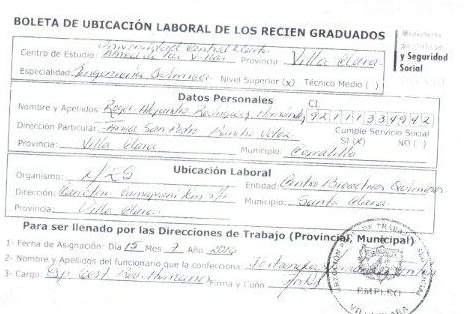 BOLETA DE UBICACIÓN LABORAL DE LOS RECIEN GRADUADOS
y Seguridad
Social
Universidad Central Marta
Centro de Estudio: Abreu de Las Villas Provincia: Villa Clara
Especialidad: Ingeniería Química Nivel Superior (x) Técnico Medio ( )
Datos Personales
CI
Nombre y Apellidos: Roger Alejandro Hernández 92111334942
Dirección Particular: San Pedro Cumple Servicio Social
SI (x) NO ( )
Provincia: Villa Clara Municipio: Corralillo
Ubicación Laboral
Organismo: Entidad: Centro Bioactivos Químicos
Dirección: Carretera Camajuaní Km 5½ Municipio: Santa Clara
Provincia: Villa Clara
Para ser llenado por las Direcciones de Trabajo (Provincial, Municipal)
1- Fecha de Asignación: Día 15 Mes 7 Año
2- Nombre y Apellidos del funcionario que la confecciona:
3- Cargo: Esp Gest Rec Humanos Firma y Cuño
DE TRABAJO
EMPLEO
VILLA CLARA